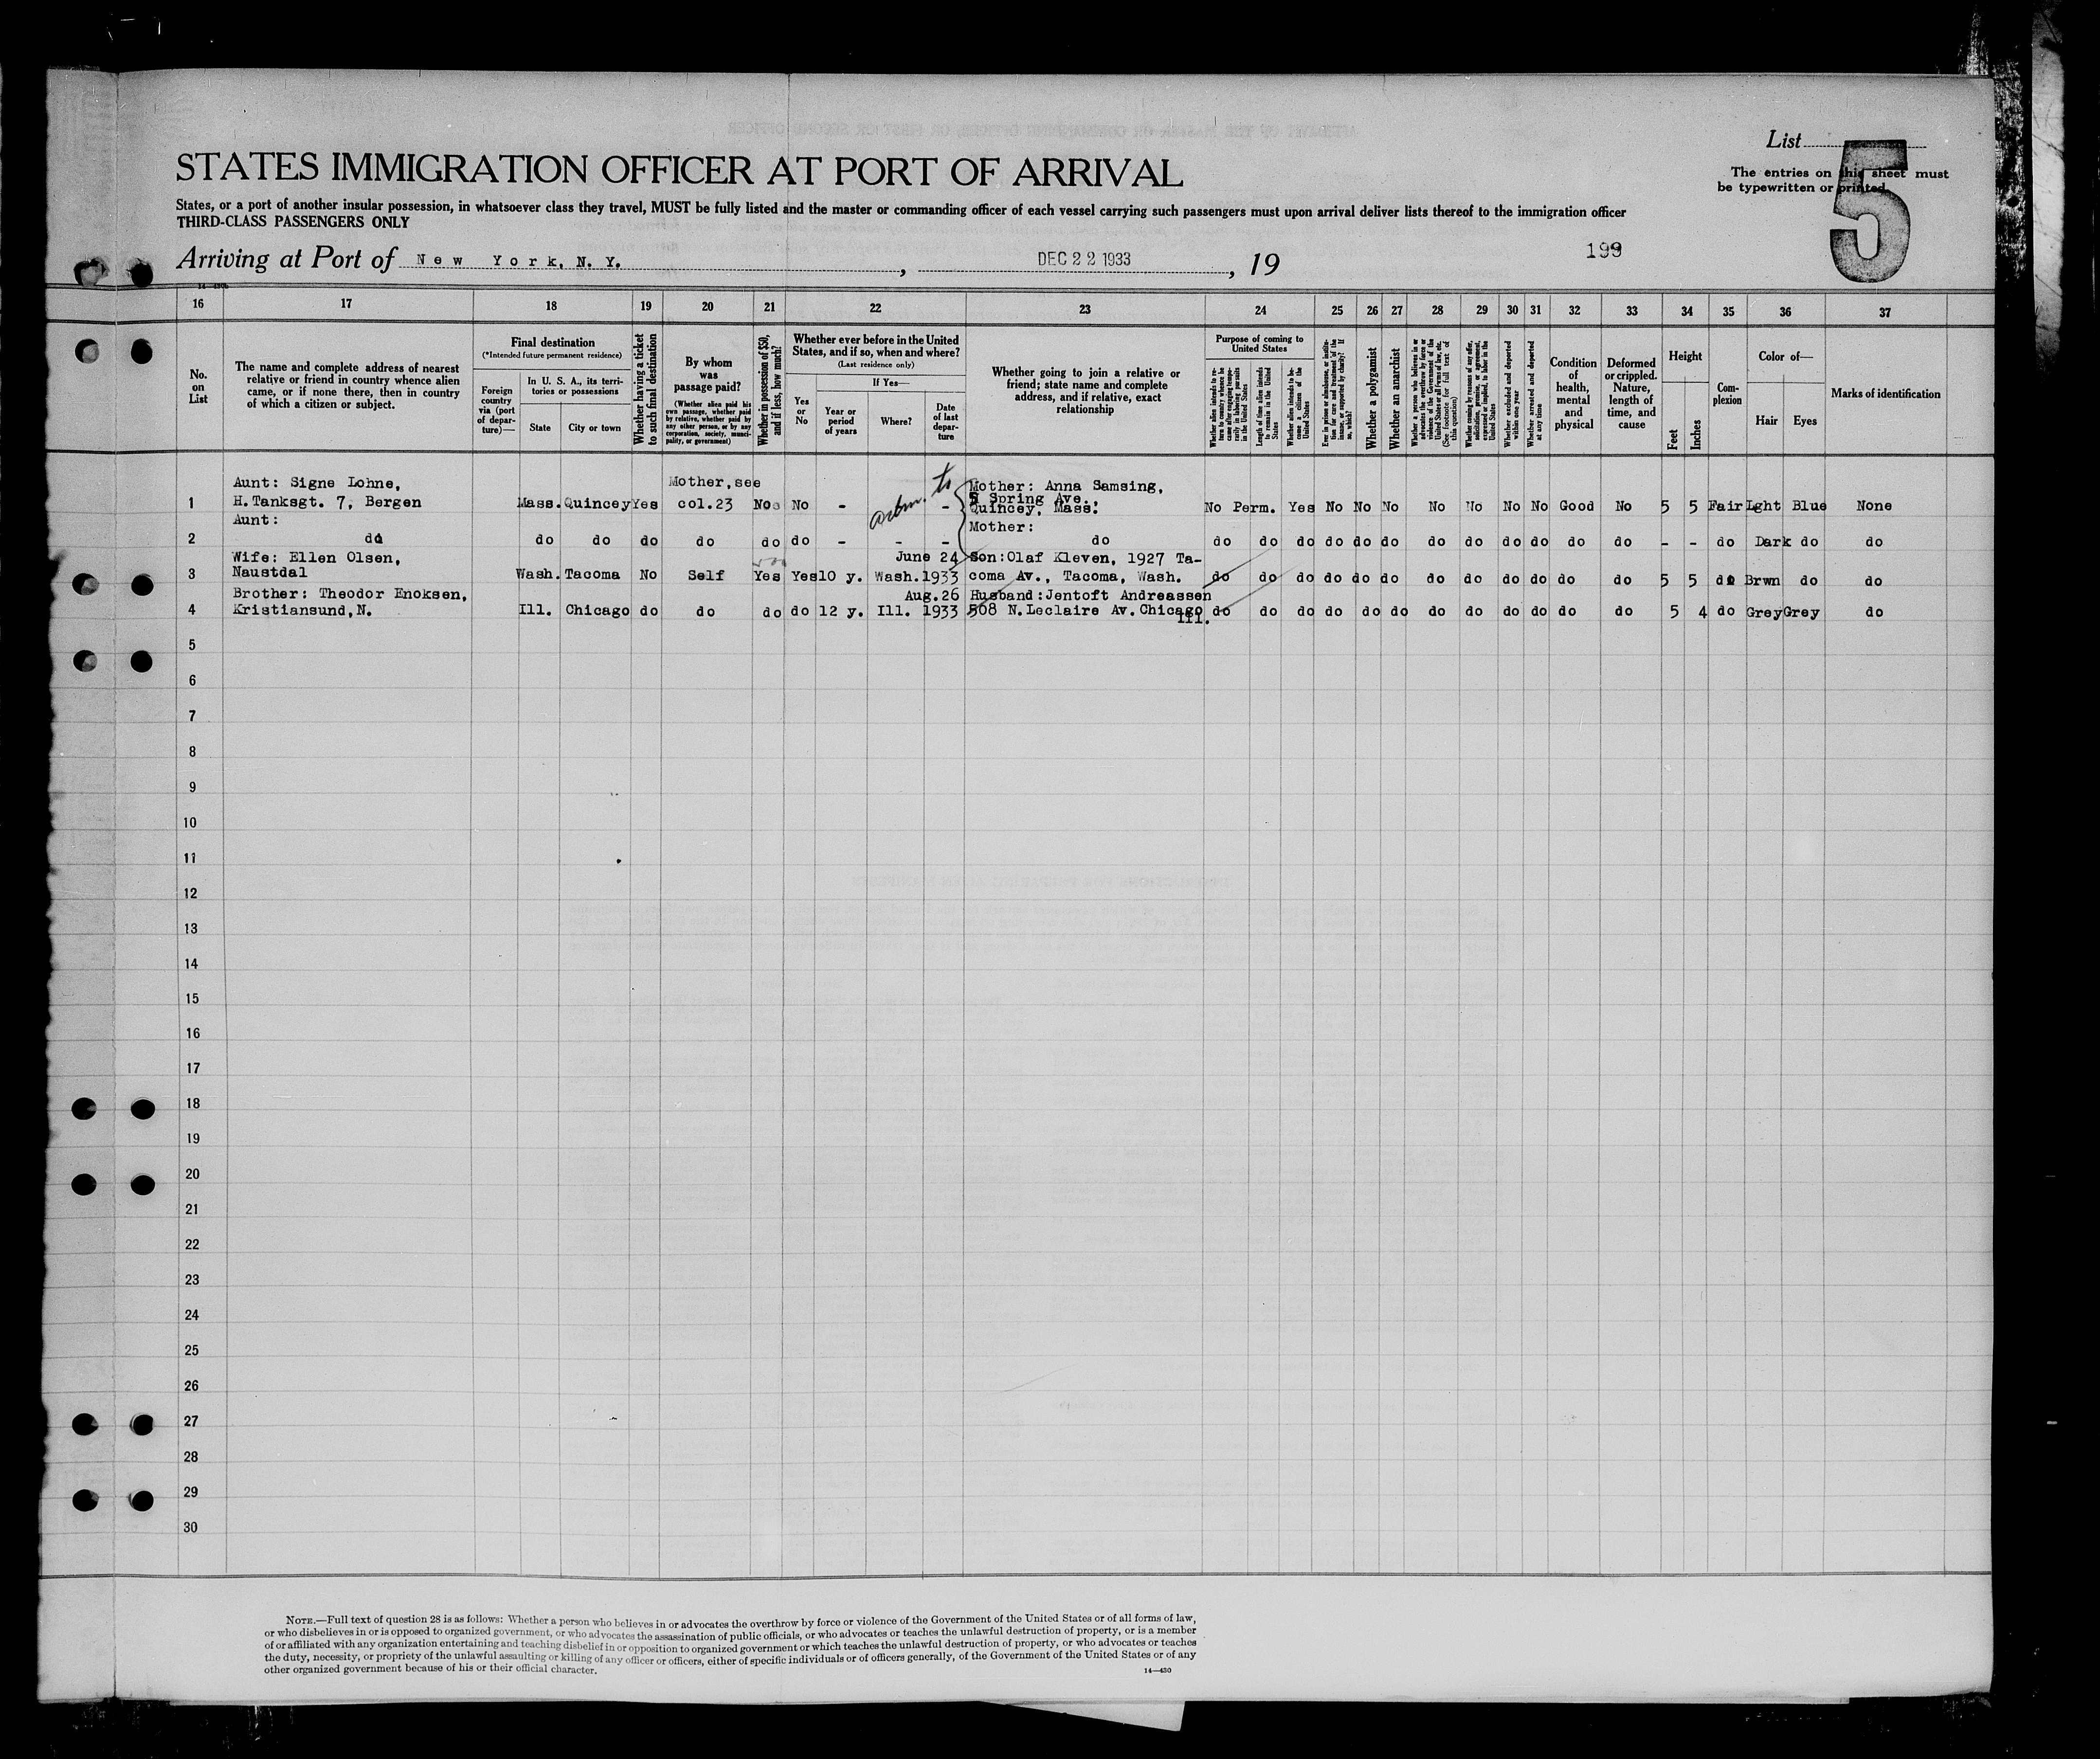 List
5
The entries on this sheet must
be typewritten or printed.
STATES IMMIGRATION OFFICER AT PORT OF ARRIVAL
States, or a port of another insular possession, in whatsoever class they travel, MUST be fully listed and the master or commanding officer of each vessel carrying such passengers must upon arrival deliver lists thereof to the immigration officer
THIRD-CLASS PASSENGERS ONLY
Arriving at Port of New York, N. Y., DEC 22 1933, 19
199
16 17 18 19 20 21 22 23 24 25 26 27 28 29 30 31 32 33 34 35 36 37
No. on List
The name and complete address of nearest
relative or friend in country whence alien
came, or if none there, then in country
of which a citizen or subject.
Final destination
(*Intended future permanent residence)
Foreign country via (port of departure)—
In U. S. A., its territories or possessions
State
City or town
Whether having a ticket to such final destination
By whom was passage paid?
(Whether alien paid his own passage, whether paid by relative, whether paid by any other person, or by any corporation, society, municipality, or government)
Whether in possession of $50, and if less, how much?
Whether ever before in the United States, and if so, when and where?
(Last residence only)
Yes or No
If Yes—
Year or period of years
Where?
Date of last departure
Whether going to join a relative or
friend; state name and complete
address, and if relative, exact
relationship
Purpose of coming to United States
Whether alien intends to return to country whence he came after engaging temporarily in laboring pursuits in the United States
Length of time alien intends to remain in the United States
Whether alien intends to become a citizen of the United States
Ever in prison or almshouse, or institution for care and treatment of the insane, or supported by charity? If so, which?
Whether a polygamist
Whether an anarchist
Whether a person who believes in or advocates the overthrow by force or violence of the Government of the United States or all forms of law, etc. (See footnote for full text of this question)
Whether coming by reasons of any offer, solicitation, promise, or agreement, expressed or implied, to labor in the United States
Whether excluded and deported within one year
Whether arrested and deported at any time
Condition of health, mental and physical
Deformed or crippled. Nature, length of time, and cause
Height
Feet
Inches
Complexion
Color of—
Hair
Eyes
Marks of identification
Aunt: Signe Lohne, Mother, see Mother: Anna Samsing,
1 H.Tanksgt. 7, Bergen Mass. Quincey Yes col.23 No No - - 5 Spring Ave., Quincey, Mass. No Perm. Yes No No No No No No No Good No 5 5 Fair Lght Blue None
Aunt: Mother:
2 do do do do do do do - - - do do do do do do do do do do do do do - - do Dark do do
Wife: Ellen Olsen, June 24 Son:Olaf Kleven, 1927 Ta-
3 Naustdal Wash. Tacoma No Self Yes Yes 10 y. Wash. 1933 coma Av., Tacoma, Wash. do do do do do do do do do do do do 5 5 do Brwn do do
Brother: Theodor Enoksen, Aug.26 Husband:Jentoft Andreassen
4 Kristiansund,N. Ill. Chicago do do do do 12 y. Ill. 1933 508 N.Leclaire Av.Chicago Ill. do do do do do do do do do do do do 5 4 do Grey Grey do
5
6
7
8
9
10
11
12
13
14
15
16
17
18
19
20
21
22
23
24
25
26
27
28
29
30
NOTE.—Full text of question 28 is as follows: Whether a person who believes in or advocates the overthrow by force or violence of the Government of the United States or of all forms of law,
or who disbelieves in or is opposed to organized government, or who advocates the assassination of public officials, or who advocates or teaches the unlawful destruction of property, or is a member
of or affiliated with any organization entertaining and teaching disbelief in or opposition to organized government or which teaches the unlawful destruction of property, or who advocates or teaches
the duty, necessity, or propriety of the unlawful assaulting or killing of any officer or officers, either of specific individuals or of officers generally, of the Government of the United States or of any
other organized government because of his or their official character.
14—430